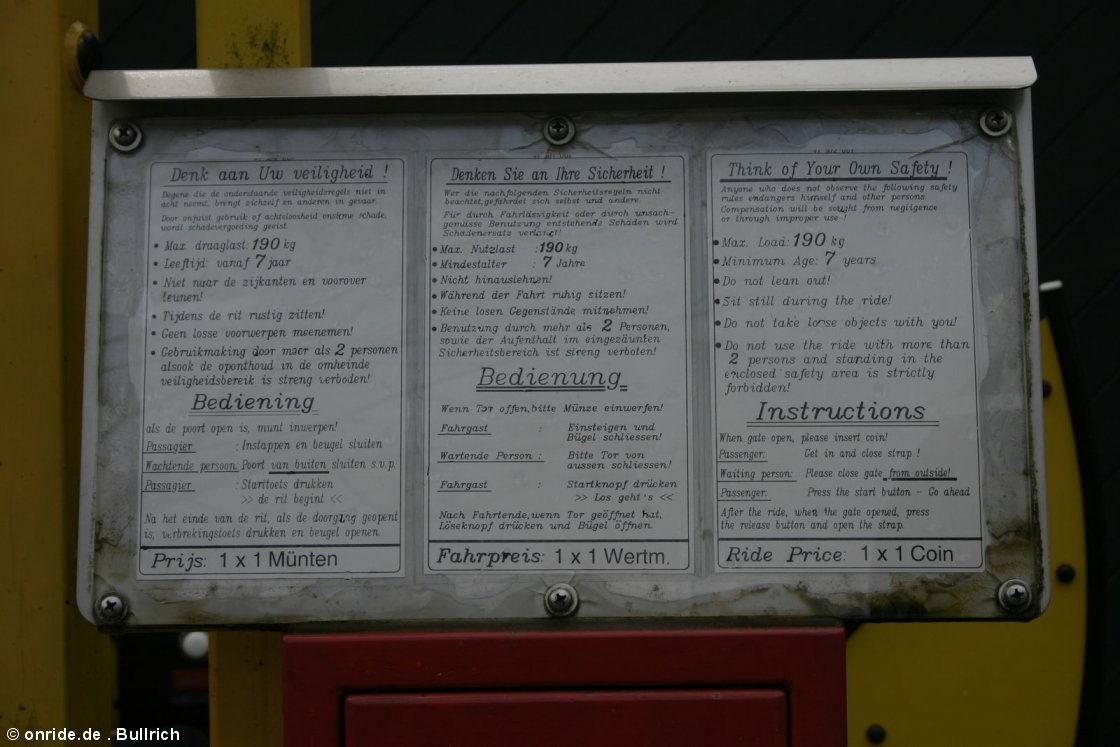 Denk aan Uw veiligheid !
Degene die de onderstaande veiligheidsregels niet in
acht neemt, brengt zichzelf en anderen in gevaar.
Door onjuist gebruik of achteloosheid onstane schade,
wordt schadevergoeding geeist.
• Max. draaglast: 190 kg
• Leeftijd: vanaf 7 jaar
• Niet naar de zijkanten en voorover
leunen!
• Tijdens de rit rustig zitten!
• Geen losse voorwerpen meenemen!
• Gebruikmaking door meer als 2 personen
alsook de oponthoud in de omheinde
veiligheidsbereik is streng verboden!
Bediening
als de poort open is, munt inwerpen!
Passagier : Instappen en beugel sluiten
Wachtende persoon: Poort van buiten sluiten s.v.p.
Passagier : Starttoets drukken
>> de rit begint <<
Na het einde van de rit, als de doorgang geopent
is, verbrekingstoets drukken en beugel openen.
Prijs: 1 x 1 Münten
Denken Sie an Ihre Sicherheit !
Wer die nachfolgenden Sicherheitsregeln nicht
beachtet,gefährdet sich selbst und andere.
Für durch Fahrlässigkeit oder durch unsach-
gemässe Benutzung entstehende Schäden wird
Schadenersatz verlangt!
• Max. Nutzlast : 190 kg
• Mindestalter : 7 Jahre
• Nicht hinauslehnen!
• Während der Fahrt ruhig sitzen!
• Keine losen Gegenstände mitnehmen!
• Benutzung durch mehr als 2 Personen,
sowie der Aufenthalt im eingezäunten
Sicherheitsbereich ist streng verboten!
Bedienung
Wenn Tor offen,bitte Münze einwerfen!
Fahrgast : Einsteigen und
Bügel schliessen!
Wartende Person : Bitte Tor von
aussen schliessen!
Fahrgast : Startknopf drücken
>> Los geht's <<
Nach Fahrtende,wenn Tor geöffnet hat,
Löseknopf drücken und Bügel öffnen.
Fahrpreis: 1 x 1 Wertm.
Think of Your Own Safety !
Anyone who does not observe the following safety
rules endangers himself and other persons.
Compensation will be sought from negligence
or through improper use !
• Max. Load: 190 kg
• Minimum Age: 7 years
• Do not lean out!
• Sit still during the ride!
• Do not take loose objects with you!
• Do not use the ride with more than
2 persons and standing in the
enclosed safety area is strictly
forbidden!
Instructions
When gate open, please insert coin!
Passenger: Get in and close strap !
Waiting person: Please close gate from outside!
Passenger: Press the start button - Go ahead
After the ride, when the gate opened, press
the release button and open the strap.
Ride Price: 1 x 1 Coin
© onride.de . Bullrich